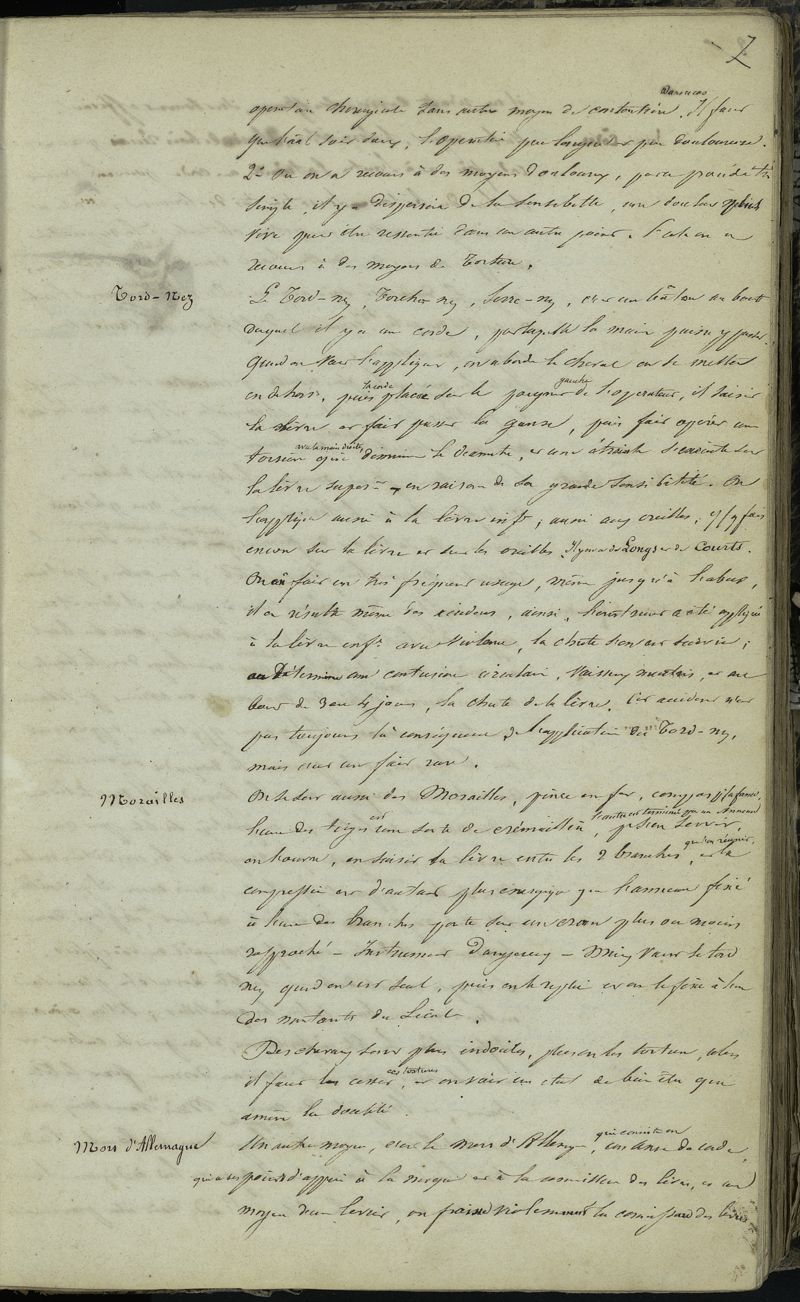 7
opération chirurgicale sans autre moyen de contention. Il faut
que l'aide soit doux, l'opération peu longue et peu douloureuse.
2° ou on a recours à des moyens douloureux, par ce procédé très
simple, il y a dispersion de la sensibilité, une douleur plus
vive peut être ressentie dans un autre point. C'est on a
recours à des moyens de torture.
Tord-Nez
Le Tord-nez, Torche-nez, Serre-nez, c'est un bâton au bout
duquel il y a une corde, par laquelle la main puisse y passer.
Quand on veut l'appliquer, on aborde le cheval on se met
en dehors, puis la corde placée sur le poignet gauche de l'opérateur, il saisit
la lèvre et fait passer la ganse, puis fait opérer une
torsion avec la main droite, qui diminue le diamètre, et une étreinte s'exécute sur
la lèvre supre en raison de sa grande sensibilité. On
l'applique aussi à la lèvre infre, aussi aux oreilles,
encore sur la lèvre et sur les oreilles. Il y en a de Longs et de Courts.
On en fait un très fréquent usage, même jusqu'à l'abus,
il en résulte même des accidens, ainsi, l'instrument a été appliqué
à la lèvre infre avec violence, la chute s'en est suivie;
on détermine une contusion circulaire, vaisseaux meurtris, et au
bout de 3 ou 4 jours, la chute de la lèvre. Cet accident n'est
pas toujours la conséquence de l'application du Tord-nez,
mais c'est un fait rare.
Morailles
On se sert aussi des Morailles, pince en fer, compas
l'une des tiges est une sorte de crémaillère, l'autre est terminée par un Anneau
on l'ouvre, on saisit la lèvre entre les 2 branches, qu'on réunit, et la
compression est d'autant plus énergique que l'anneau fixé
à l'une des branches porte sur un cran plus ou moins
rapproché – Instrument dangereux – Mieux vaut le tord
nez quand on est seul, puis on le replie et on le fixe à l'un
des montants du Licol.
Des chevaux sont plus indociles, plus on les torture, alors
il faut les cesser ces tortures, et on voit un état de bien être qui
amène la docilité.
Mors d'Allemagne
Un autre moyen, c'est le mors d'Allemagne, qui consiste en une anse de corde,
qui a ses points d'appui à la nuque et à la commissure des lèvres, et au
moyen d'un levier, on froisse violemment la commissure des lèvres